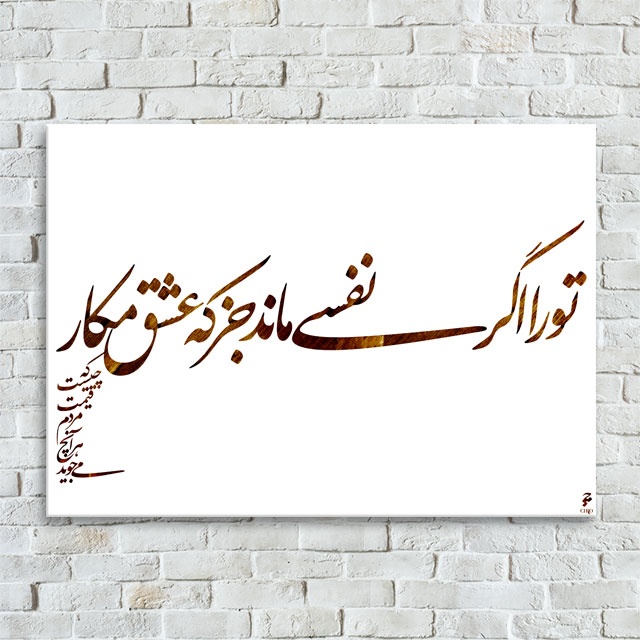 تو را اگر نفسی ماند جز که عشق مکار
که
چیست
قیمت
مردم
هر آنچ
می‌جوید